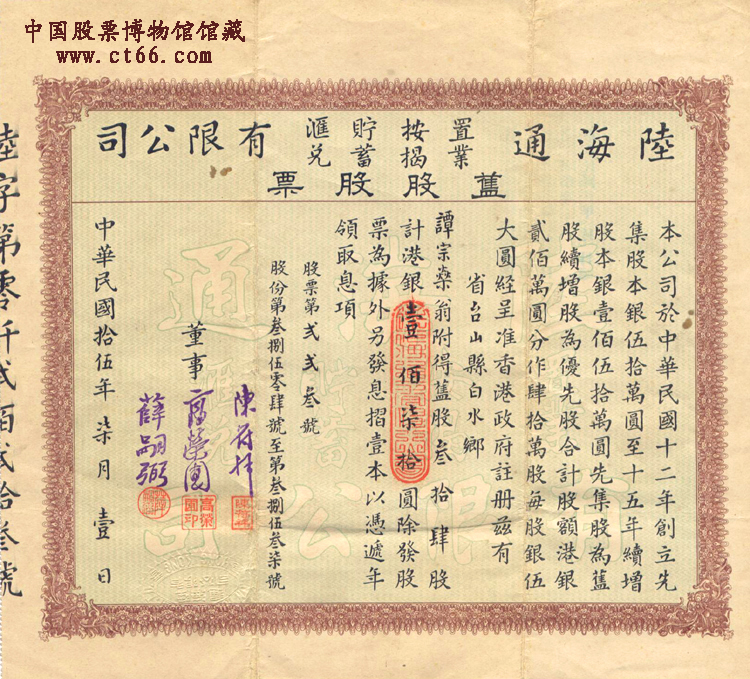 中国股票博物馆馆藏
www.ct66.com
陸海通置業按揭貯蓄滙兌有限公司
舊股股票
本公司於中華民國十二年創立先
集股本銀伍拾萬圓至十五年續增
股本銀壹佰伍拾萬圓先集股為舊
股續增股為優先股合計股額港銀
貳佰萬圓分作肆拾萬股每股銀伍
大圓經呈准香港政府註册兹有
省台山縣白水鄉
譚宗燊翁附得舊股叁拾肆股
計港銀壹佰柒拾圓除發股
票為據外另發息摺壹本以憑遞年
領取息項
股票第弍弍叁號
股份第叁捌伍零肆號至第叁捌伍叁柒號
董事
陳符祥
高榮園
薛嗣弼
中華民國拾伍年柒月壹日
陸字第零仟弍佰弍拾叁號